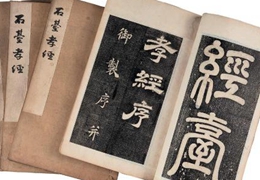 石臺孝經
石臺孝經
孝經序
御製序并
經臺